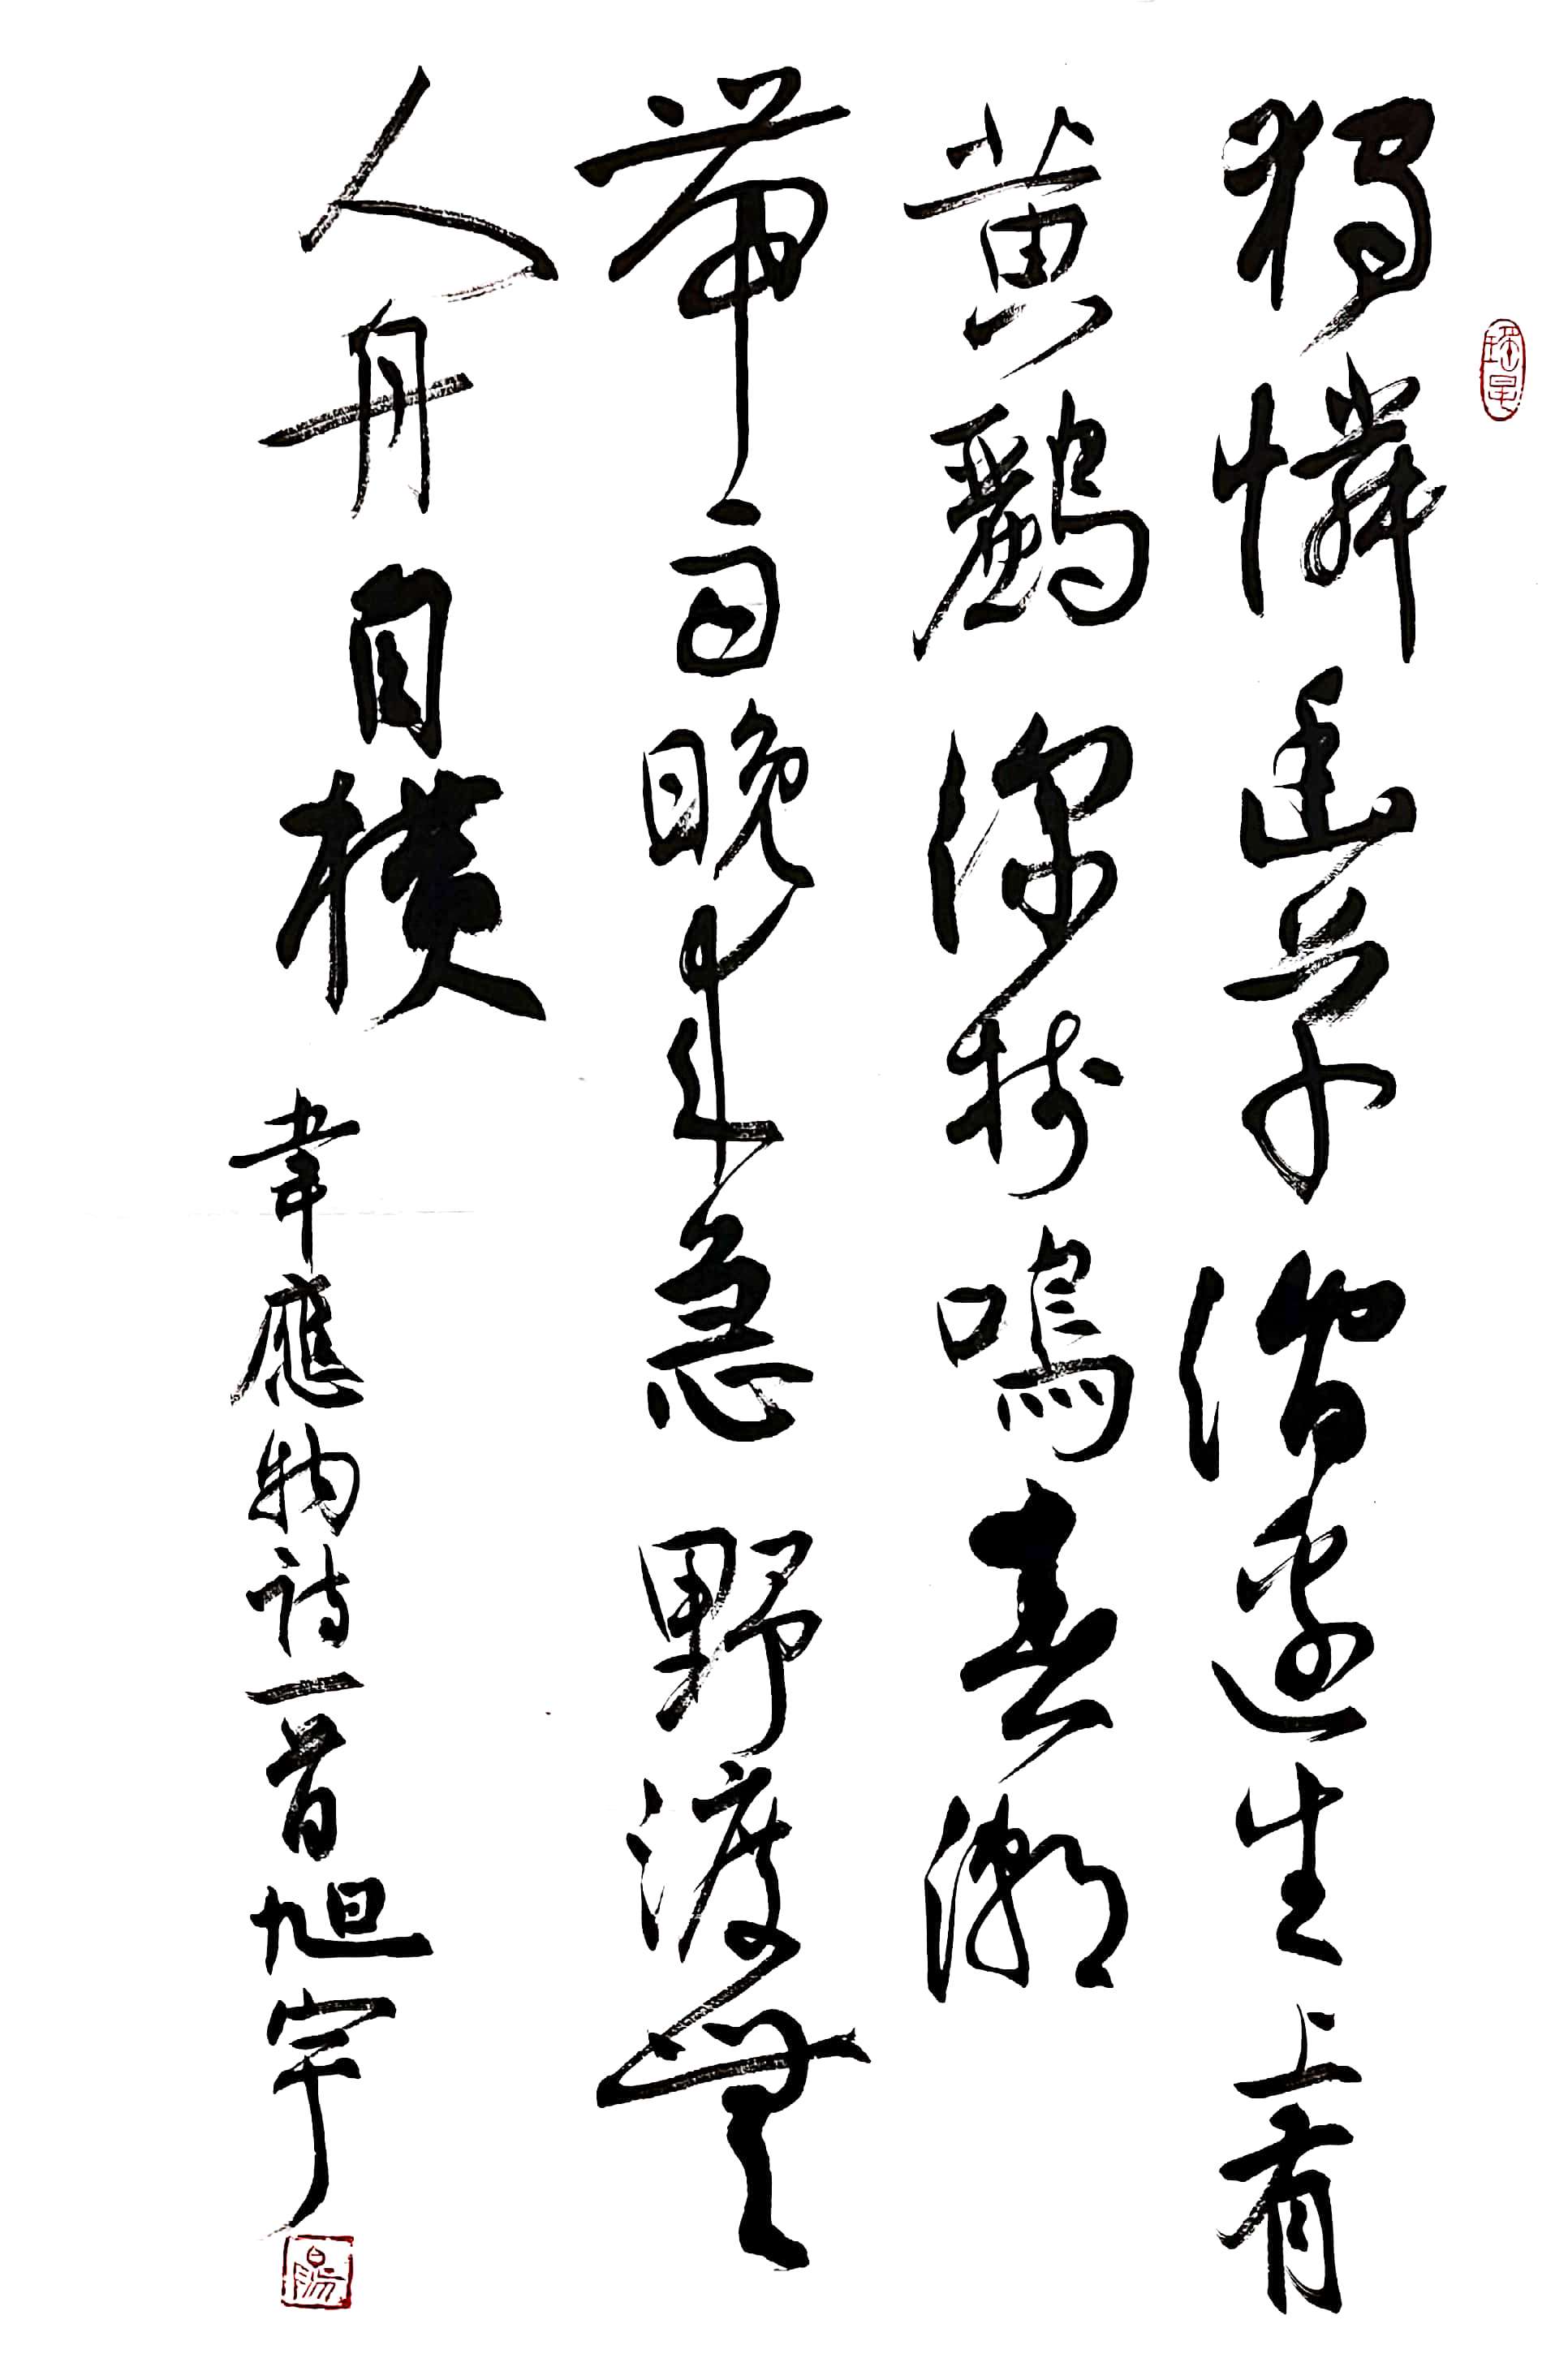 獨憐幽草澗邊生上有
黃鸝深樹鳴春潮
帶雨晚來急野渡無
人舟自橫 韋應物詩一首旭宇